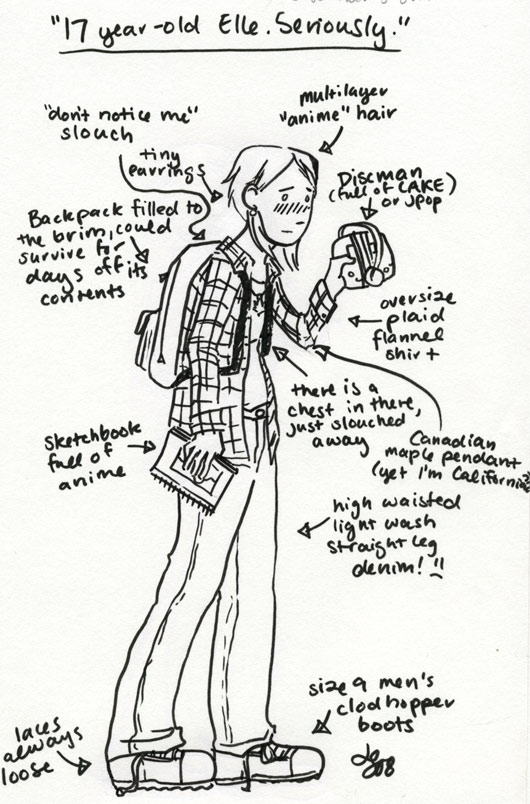 "17 year-old Elle. Seriously."
multilayer
"anime" hair
"don't notice me"
slouch
tiny
earrings
Discman
(full of CAKE)
or Jpop
Backpack filled to
the brim, could
survive for
days off its
contents
oversize
plaid
flannel
shirt
there is a
chest in there,
just slouched
away
Canadian
maple pendant
(yet I'm
sketchbook
full of
anime
high waisted
light wash
straight leg
denim! !!
size 9 men's
clodhopper
boots
laces
always
loose